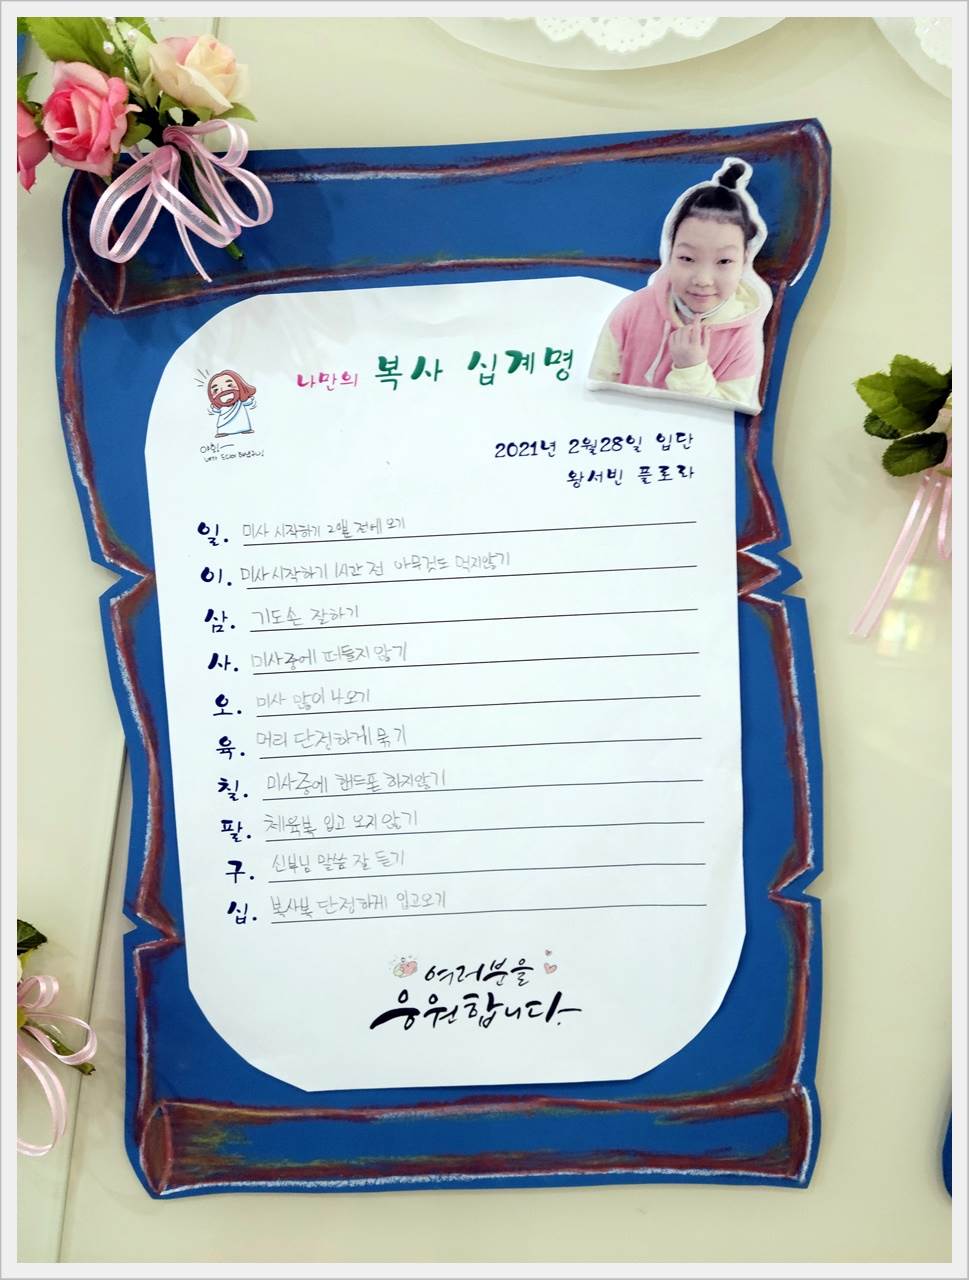 나만의 복사 십계명
야훼~
2021년 2월28일 입단
왕서빈 플로라
일. 미사 시작하기 전에 오기
이. 미사시작하기 1시간 전 아무것도 먹지않기
삼. 기도손 잘하기
사. 미사중에 떠들지 않기
오. 미사 많이 나오기
육. 머리 단정하게 묶기
칠. 미사중에 핸드폰 하지않기
팔. 체육복 입고 오지 않기
구. 신부님 말씀 잘 듣기
십. 복사복 단정하게 입고오기
여러분을
응원합니다.